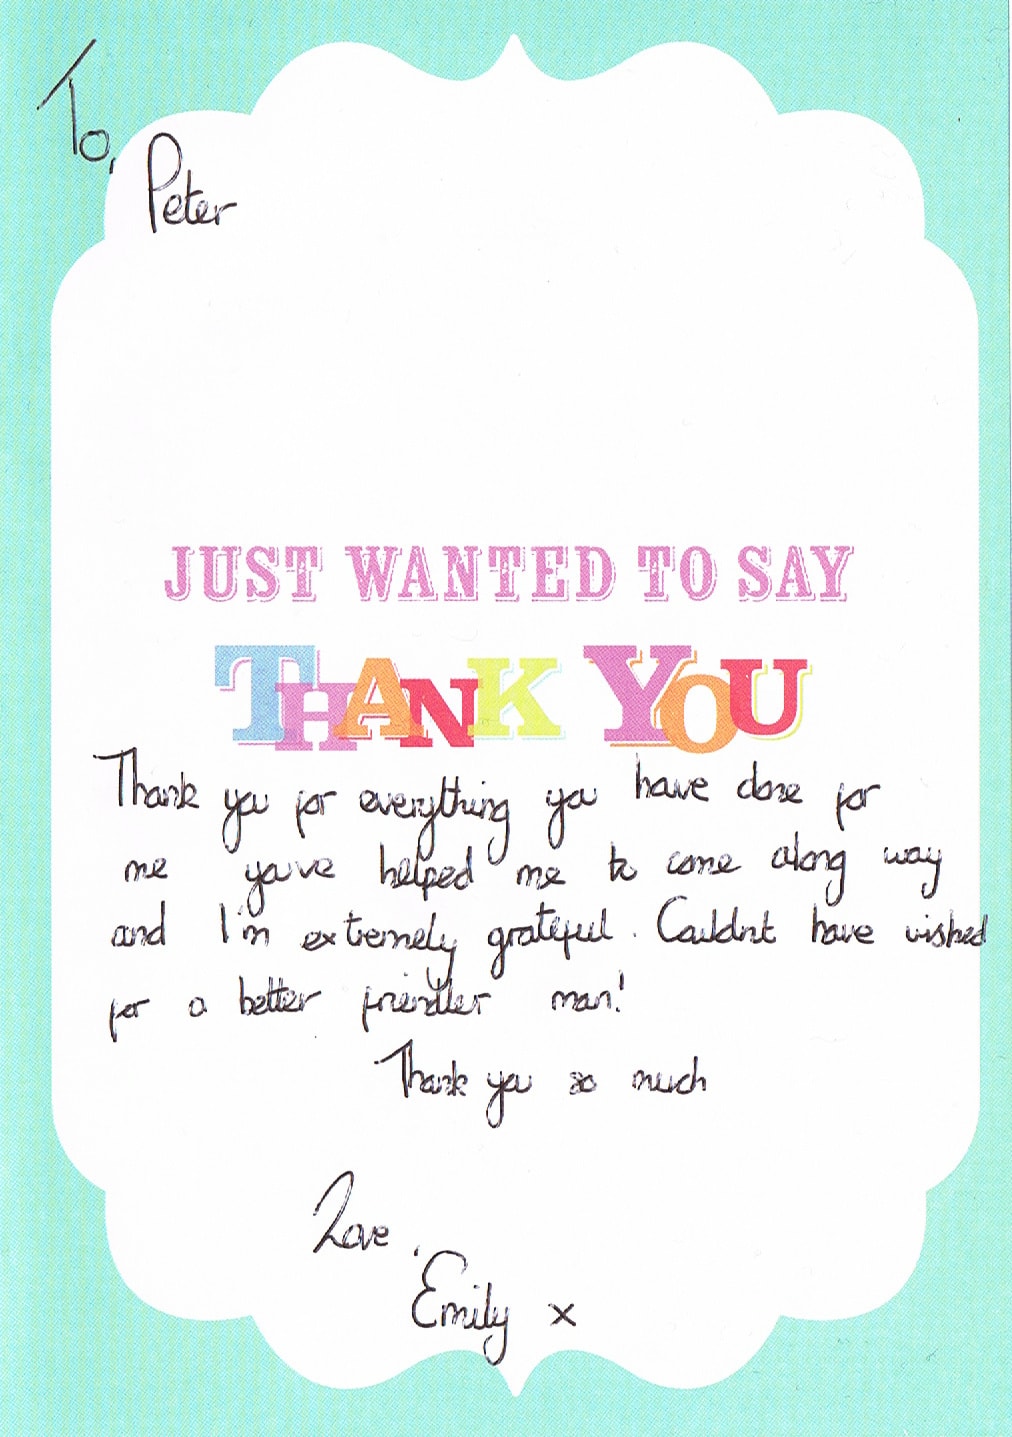 To,
Peter
JUST WANTED TO SAY
THANK YOU
Thank you for everything you have done for
me you've helped me to come along way
and I'm extremely grateful. Couldn't have wished
for a better friendlier man!
Thank you so much
Love,
Emily x